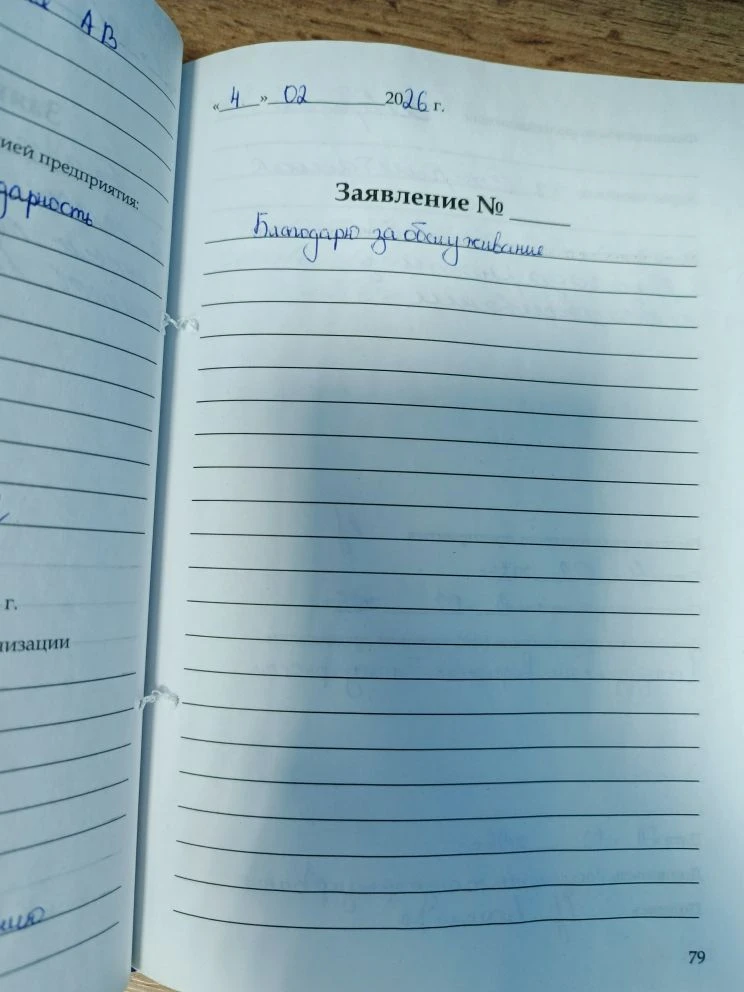 АВ
цией предприятия:
дарность
г.
низации
«4» 02 2026 г.
Заявление № ____
Благодарю за обслуживание
79